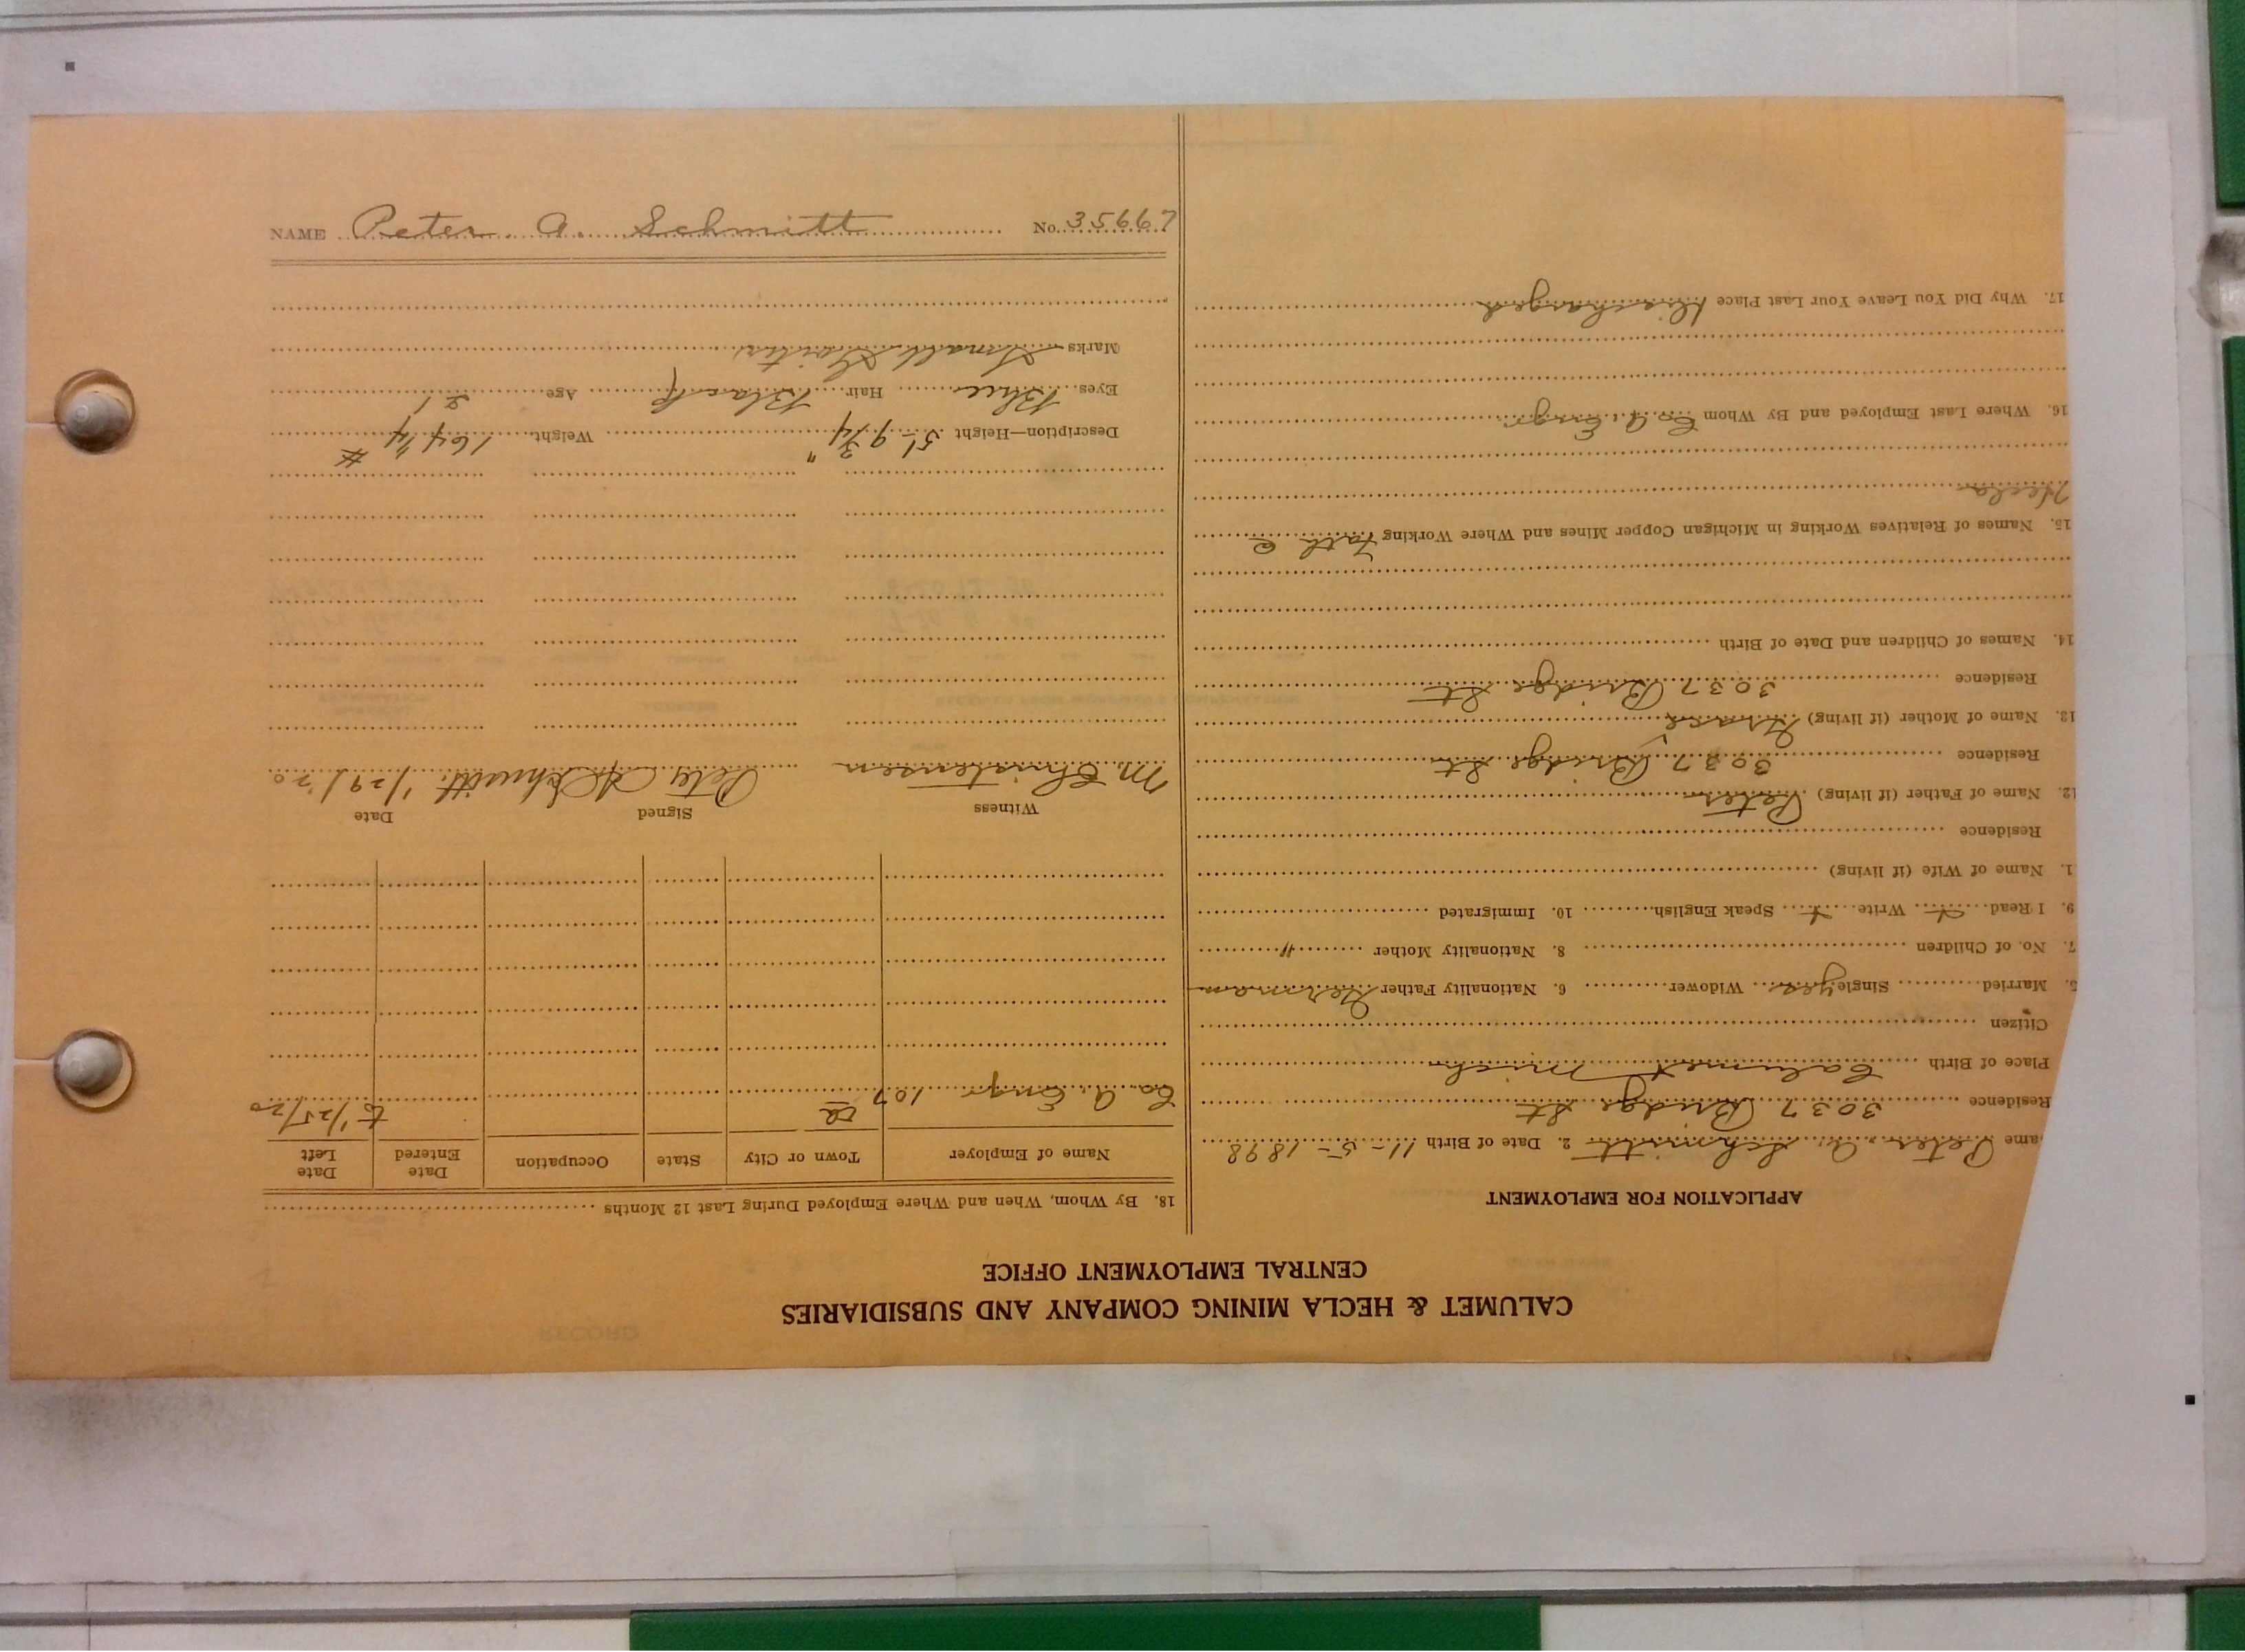 CALUMET & HECLA MINING COMPANY AND SUBSIDIARIES
CENTRAL EMPLOYMENT OFFICE
APPLICATION FOR EMPLOYMENT
ame Peter A. Schmitt 2. Date of Birth 11-5-1898
Residence 3037 Bridge St
Place of Birth Calumet Mich
Citizen
5. Married Single yes Widower 6. Nationality Father German
7. No. of Children 8. Nationality Mother "
9. I Read Write Speak English 10. Immigrated
1. Name of Wife (if living)
Residence
12. Name of Father (if living) Peter
Residence 3037 Bridge St
13. Name of Mother (if living) Grace
Residence 3037 Bridge St
14. Names of Children and Date of Birth
15. Names of Relatives Working in Michigan Copper Mines and Where Working Fath @
Hecla
16. Where Last Employed and By Whom Co. A. Engr.
17. Why Did You Leave Your Last Place Discharged
18. By Whom, When and Where Employed During Last 12 Months
Name of Employer Town or City State Occupation Date Entered Date Left
Co. A. Engr 107 to 1/25/20
Witness Signed Date
M Christensen Peter A Schmitt. 1/29/20
Description—Height 5'-9 3/4" Weight 164 1/4 #
Eyes Blue Hair Black Age 21
Marks Small Goiter
NAME Peter A. Schmitt No. 35667